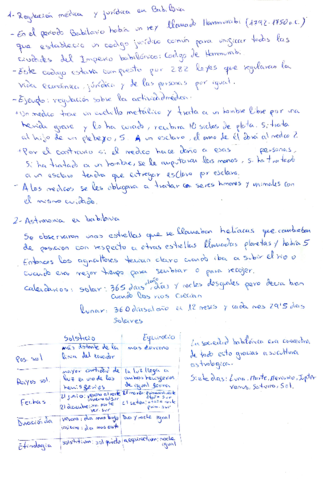 1- Regulación médica y jurídica en Babilonia
- En el periodo Babilonio había un rey llamado Hammurabi (1792-1750 a.C.)
que estableció un código jurídico común para unificar todas las
ciudades del Imperio babilónico: Código de Hammurabi.
- Este código estaba compuesto por 282 leyes que regulaban la
vida económica, jurídica y de las personas por igual.
- Ejemplo: regulación sobre la actividad médica:
un médico trae un cuchillo metálico y trata a un hombre libre por una
herida grave y lo ha curado, recibirá 10 siclos de plata. Si trata
al hijo de un plebeyo, 5. A un esclavo, el amo de él dará al médico 2
• Por el contrario si el médico hace daño a esas personas.
Si ha tratado a un hombre, se le amputarán las manos, si ha tratado
a un esclavo tendrá que entregar esclavo por esclavo.
- A los médicos se les obligaba a tratar a seres humanos y animales con
el mismo cuidado.
2- Astronomía en babilonia
Se observaron unas estrellas que se llamaban que cambiaban
de posición con respecto a otras estrellas llamadas planetas y había 5
Entonces los agricultores tenían claro cuándo iba a subir el río o
cuando era mejor tiempo para sembrar o para recoger.
calendarios: solar: 365 días y noches desiguales pero decía bien
cuándo los ríos crecían
lunar: 360 días 12 meses y cada mes 29'5 días
solares
Solsticio Equinoccio
Pos sol más distante de la línea del ecuador más cercano
Rayos sol mayor cantidad de luz en uno de los hemisferios la luz llega a ambos hemisferios de igual forma
Fechas 21 junio: verano norte invierno sur
21 diciembre: 
Duración día verano: día más largo
invierno: día más corto Día y noche igual
Etimología solstitium: sol quieto aequinoctium: noche igual
En sociedad babilónica era conocedora
de todo esto gracias a su cultura
astrológica.
Siete días: Luna, Marte, Mercurio, Júpiter
Venus, Saturno, Sol.